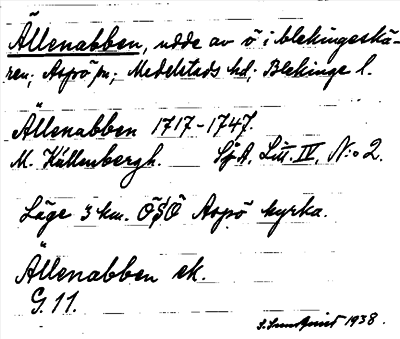 Ällenabben, udde av ö i blekingeskä-
ren; Aspö sn; Medelstads hd; Blekinge l.
Ällenabben 1717-1747.
M. Källenbergh. SjA. Litt. IV, N:o 2.
Läge 3 km. ÖSÖ Aspö kyrka.
Ällenabben ek.
G. 11.
1938.